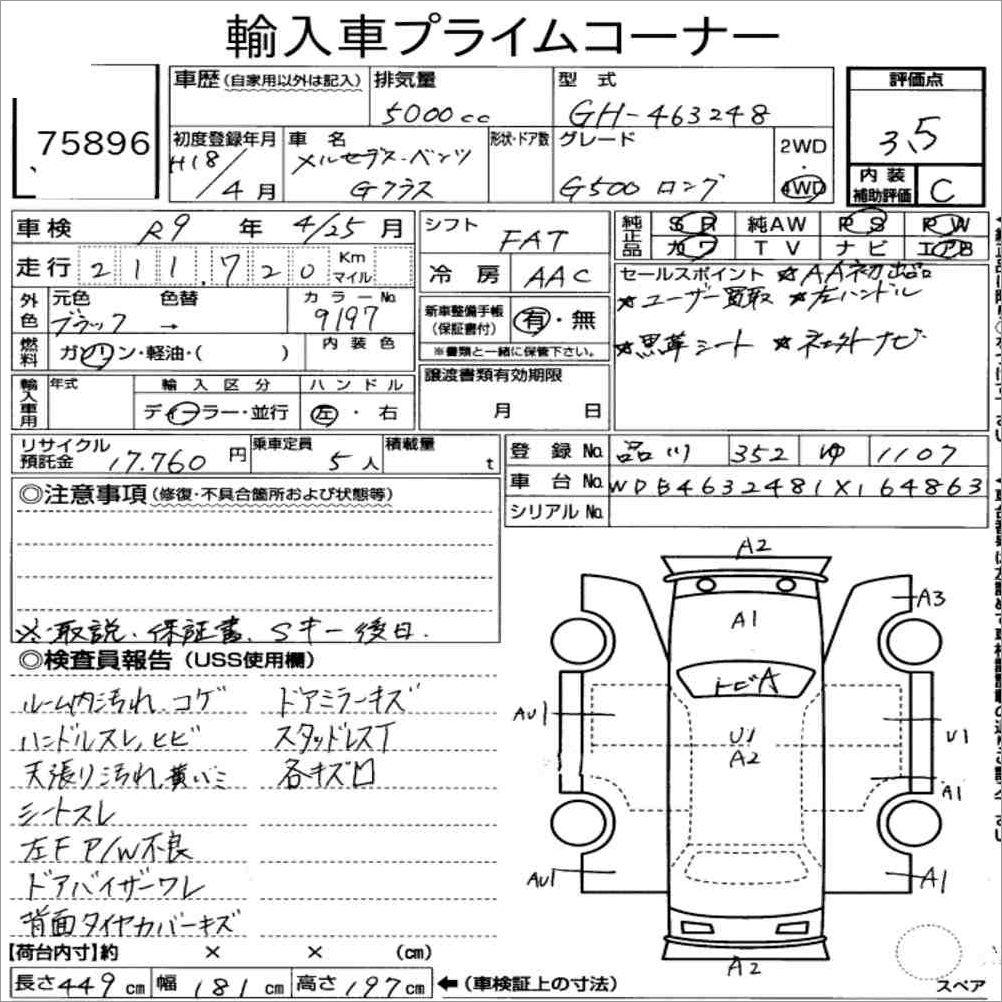 輸入車プライムコーナー
75896
車歴(自家用以外は記入) 排気量 5000cc
型式 GH-463248
評価点 3.5
初度登録年月 H18/4月
車名 メルセデス・ベンツ Gクラス
形状・ドア数
グレード G500 ロング
2WD・4WD
内装補助評価 C
車検 R9年 4/25月
シフト FAT
純正品 SR 純AW PS PW
カワ TV ナビ エアB
走行 211,720 Km マイル
冷房 AAC
セールスポイント ☆AA初出品
☆ユーザー買取 ☆左ハンドル
☆黒革シート ☆社外ナビ
外色 元色 ブラック 色替 →
カラーNo. 9197
新車整備手帳(保証書付) 有・無
※書類と一緒に保管下さい。
燃料 ガソリン・軽油・( )
内装色
輸入車用 年式
輸入区分 ディーラー・並行
ハンドル 左・右
譲渡書類有効期限
月 日
リサイクル預託金 17,760円
乗車定員 5人
積載量 t
登録No. 品川 352 ゆ 1107
車台No. WDB4632481X164863
シリアルNo.
◎注意事項(修復・不具合箇所および状態等)
※取説、保証書、Sキー後日.
◎検査員報告(USS使用欄)
ルーム内汚れ、コゲ
ハンドルスレ、ヒビ
天張り汚れ、黄バミ
シートスレ
左F P/W不良
ドアバイザーワレ
背面タイヤカバーキズ
ドアミラーキズ
スタッドレスT
各キズロ
A2
A3
A1
トビA
AU1
U1
A2
U1
A1
AU1
A1
A2
スペア
【荷台内寸】約 × × (cm)
長さ449cm 幅181cm 高さ197cm ←(車検証上の寸法)